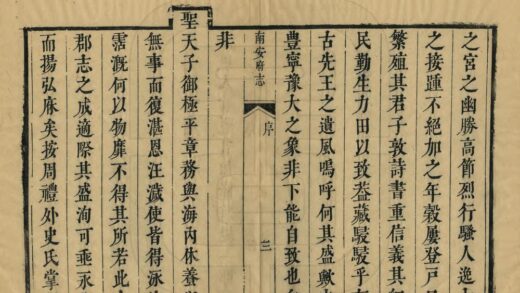 之宮之幽勝高節烈行騷人逸
之接踵不絕加之年榖屢登戶
繁殖其君子敦詩書重信義其
民勤生力田以致葢藏駸駸乎
古先王之遺風嗚呼何其盛歟
豐寧豫大之象非下能自致也
南安府志
序
三
非
聖天子御極平章務與海內休養
無事而復湛恩汪濊使皆得泳
霑溉何以物靡不得其所若此
郡志之成適際其盛洵可垂永
而揚弘庥矣按周禮外史氏掌